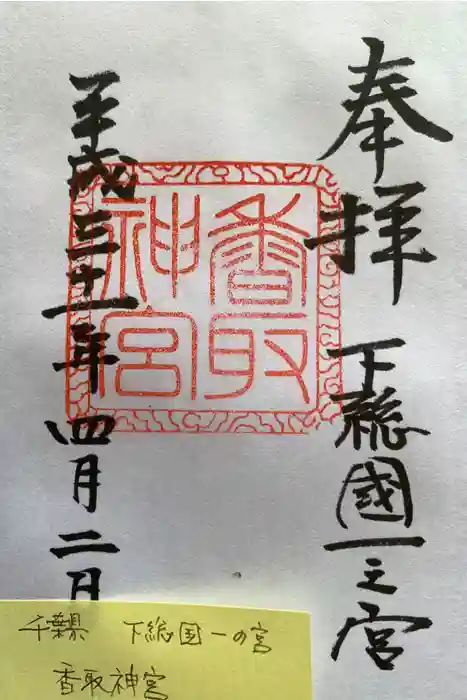 奉拝 下総國一之宮
香取神宮
平成三十一年四月二日
千葉県 下総国一の宮
香取神宮